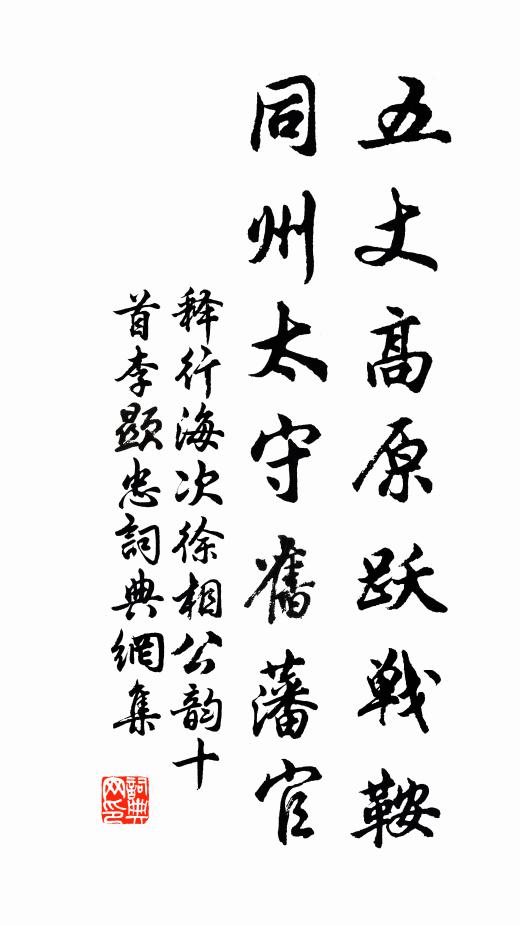 五丈高原跃戦鞍
同州太守舊藩官
释行海次徐相公韵十
首李顕忠詞典網集
詞典网印